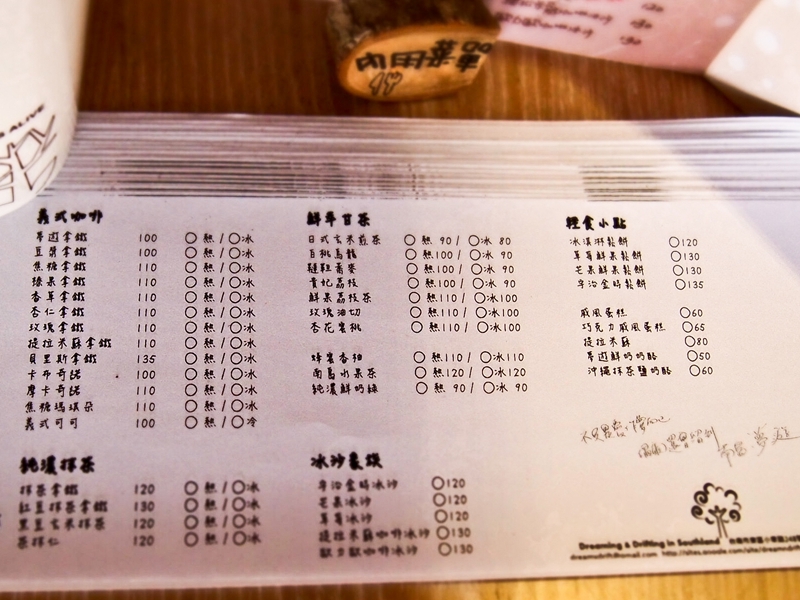 ALIVE
內用菜單
130
130
義式咖啡
夢遊拿鐵 100 ○熱/○冰
豆漿拿鐵 100 ○熱/○冰
焦糖拿鐵 110 ○熱/○冰
榛果拿鐵 110 ○熱/○冰
香草拿鐵 110 ○熱/○冰
杏仁拿鐵 110 ○熱/○冰
玫瑰拿鐵 110 ○熱/○冰
提拉米蘇拿鐵 110 ○熱/○冰
貝里斯拿鐵 135 ○熱/○冰
卡布奇諾 100 ○熱/○冰
摩卡奇諾 110 ○熱/○冰
焦糖瑪琪朵 110 ○熱/○冰
義式可可 100 ○熱/○冷
純濃抹茶
抹茶拿鐵 120 ○熱/○冰
紅豆抹茶拿鐵 130 ○熱/○冰
黑豆玄米抹茶 120 ○熱/○冰
茶抹仁 120 ○熱/○冰
鮮萃甘茶
日式玄米煎茶 ○熱 90/ ○冰 80
白桃烏龍 ○熱100/ ○冰 90
韃靼蕎麥 ○熱100/ ○冰 90
貴妃荔枝 ○熱100/ ○冰 90
鮮果荔枝茶 ○熱110/ ○冰100
玫瑰油切 ○熱110/ ○冰100
杏花蜜桃 ○熱110/ ○冰100
蜂蜜香柚 ○熱110/ ○冰110
南島水果茶 ○熱120/ ○冰120
純濃鮮奶綠 ○熱 90/ ○冰 90
冰沙
宇治金時冰沙 ○120
芒果冰沙 ○120
草莓冰沙 ○120
提拉米蘇咖啡冰沙 ○130
歐力歐咖啡冰沙 ○130
輕食小點
冰淇淋鬆餅 ○120
草莓鮮果鬆餅 ○130
芒果鮮果鬆餅 ○130
宇治金時鬆餅 ○135
戚風蛋糕 ○60
巧克力戚風蛋糕 ○65
提拉米蘇 ○80
夢遊鮮奶奶酪 ○50
沖繩抹茶鹽奶酪 ○60
夢遊
Dreaming & Drifting in Southland